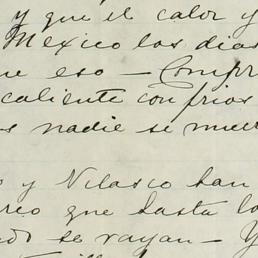 y que el calor y
Mexico los dias
ue eso — Compr
caliente con frios
s nadie se muer
o y Velasco han
reo que hasta lo
do se vayan — Y